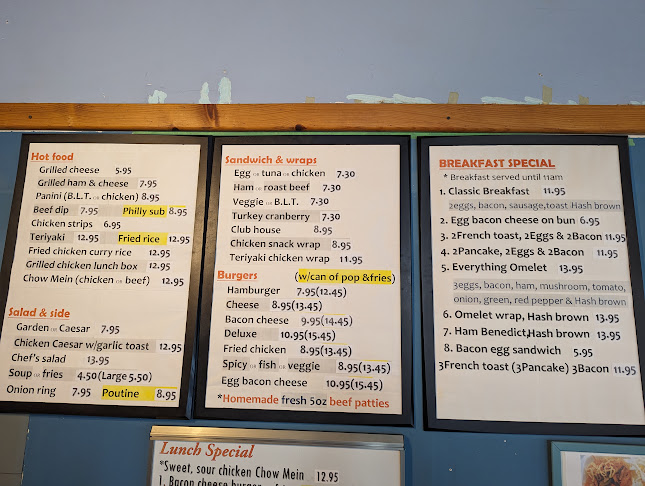 Hot food
Grilled cheese 5.95
Grilled ham & cheese 7.95
Panini (B.L.T. OR chicken) 8.95
Beef dip 7.95 Philly sub 8.95
Chicken strips 6.95
Teriyaki 12.95 Fried rice 12.95
Fried chicken curry rice 12.95
Grilled chicken lunch box 12.95
Chow Mein (chicken OR beef) 12.95
Salad & side
Garden OR Caesar 7.95
Chicken Caesar w/garlic toast 12.95
Chef's salad 13.95
Soup OR fries 4.50(Large 5.50)
Onion ring 7.95 Poutine 8.95
Sandwich & wraps
Egg OR tuna OR chicken 7.30
Ham OR roast beef 7.30
Veggie OR B.L.T. 7.30
Turkey cranberry 7.30
Club house 8.95
Chicken snack wrap 8.95
Teriyaki chicken wrap 11.95
Burgers (w/can of pop &fries)
Hamburger 7.95(12.45)
Cheese 8.95(13.45)
Bacon cheese 9.95(14.45)
Deluxe 10.95(15.45)
Fried chicken 8.95(13.45)
Spicy OR fish OR veggie 8.95(13.45)
Egg bacon cheese 10.95(15.45)
*Homemade fresh 5oz beef patties
BREAKFAST SPECIAL
* Breakfast served until 11am
1. Classic Breakfast 11.95
2eggs, bacon, sausage,toast Hash brown
2. Egg bacon cheese on bun 6.95
3. 2French toast, 2Eggs & 2Bacon 11.95
4. 2Pancake, 2Eggs & 2Bacon 11.95
5. Everything Omelet 13.95
3eggs, bacon, ham, mushroom, tomato,
onion, green, red pepper & Hash brown
6. Omelet wrap, Hash brown 13.95
7. Ham Benedict,Hash brown 13.95
8. Bacon egg sandwich 5.95
3French toast (3Pancake) 3Bacon 11.95
Lunch Special
*Sweet, sour chicken Chow Mein 12.95
1. Bacon cheese burger